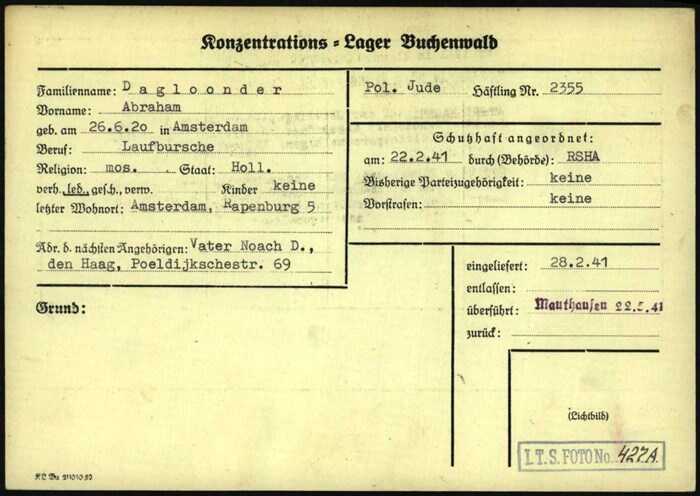 Konzentrations = Lager Buchenwald
Familienname: Dagloonder
Vorname: Abraham
geb. am 26.6.20 in Amsterdam
Beruf: Laufbursche
Religion: mos. Staat: Holl.
verh., led., gesch., verw. Kinder keine
letzter Wohnort: Amsterdam, Rapenburg 5
Adr. d. nächsten Angehörigen: Vater Noach D.,
den Haag, Poeldijkschestr. 69
Grund:
Pol. Jude Häftling Nr. 2355
Schutzhaft angeordnet:
am: 22.2.41 durch (Behörde): RSHA
Bisherige Parteizugehörigkeit: keine
Vorstrafen: keine
eingeliefert: 28.2.41
entlassen:
überführt: Mauthausen 22.5.41
zurück:
(Lichtbild)
I.T.S. FOTO No. 427A.